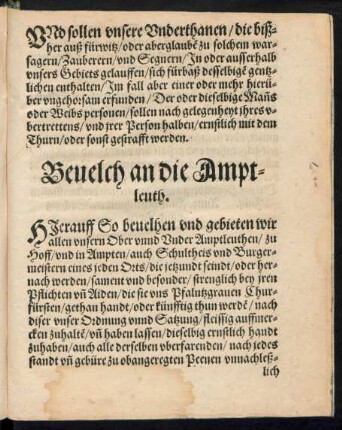 VNd sollen vnsere Vnderthanen / die biß-
her auß fürwitz / oder aberglaubē zu solchem war-
sagern / Zauberern / vnd Segnern / In oder ausserhalb
vnsers Gebiets gelauffen / sich fürbaß desselbigē gentz-
lichen enthalten / Im fall aber einer oder mehr hierü-
ber vngehorsam erfunden / Der oder dieselbige Mañs
oder Weibs personen / sollen nach gelegenheyt jhres v-
bertrettens / vnd jrer Person halben / ernstlich mit dem
Thurn / oder sonst gestrafft werden.
Beuelch an die Ampt-
leuth.
HIerauff So beuelhen vnd gebieten wir
allen vnsern Ober vnnd Vnder Amptleuthen / zu
Hoff / vnd in Ampten / auch Schultheis vnd Burger-
meistern eines jeden Orts / die jetzundt seindt / oder her-
nach werden / sament vnd besonder / strenglich bey jren
Pflichten vñ Aiden / die sie vns Pfaltzgrauen Chur-
fürsten / gethan handt / oder künfftig thun werdē / nach
diser vnser Ordnung vnnd Satzung / fleissig auffmer-
cken zuhaltē / vñ haben lassen / dieselbig ernstlich handt
zuhaben / auch alle derselben vberfarenden / nach jedes
standt vñ gebüre zu obangeregten Peenen vnnachleß-
lich